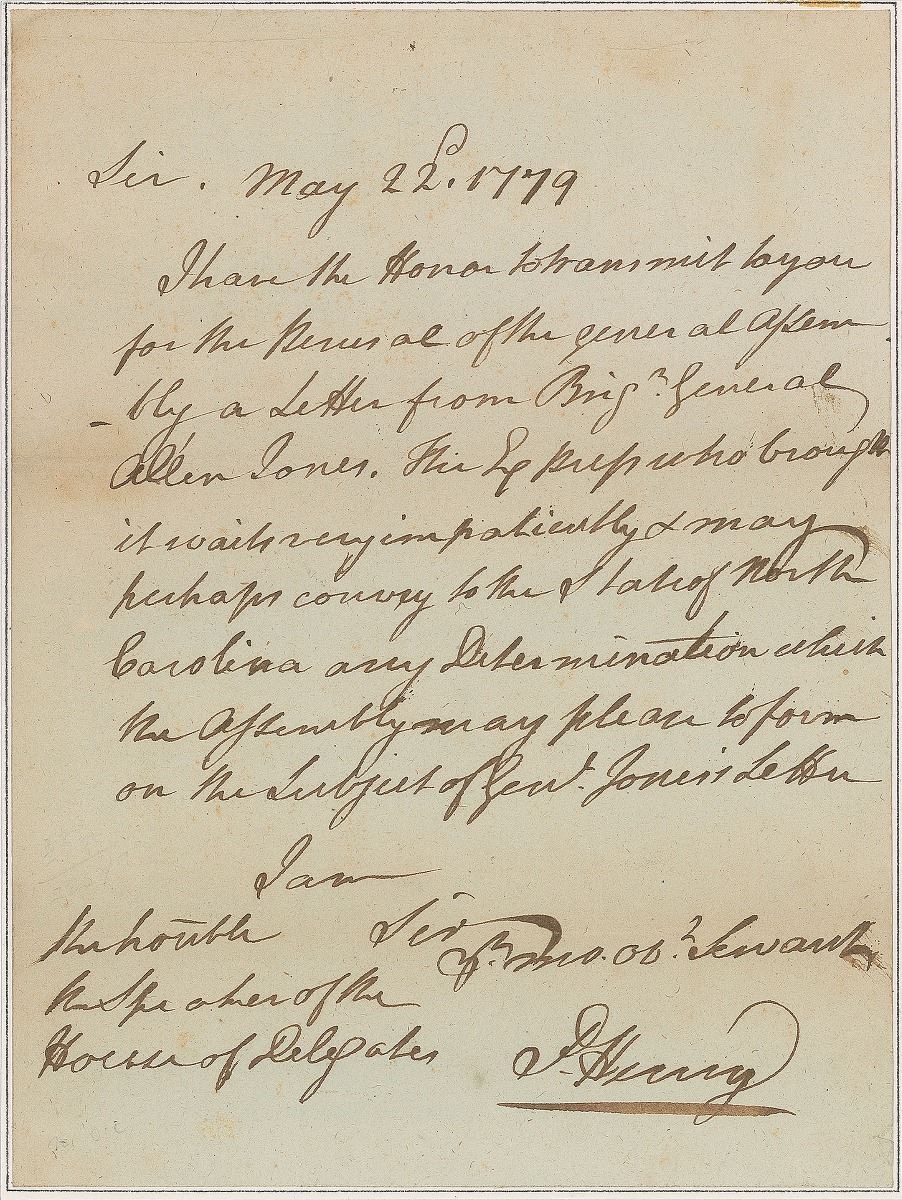 Sir. May 22d. 1779
I have the Honor to transmit to you
for the Perusal of the general Assem
-bly a Letter from Brigr. General
Allen Jones. The Express who brought
it waits very impatiently & may
perhaps convey to the State of North
Carolina any Determination which
the Assembly may please to form
on the Subject of Genl. Jones's Letter
I am
Sir
Yr. mo. obt. Servant
P. Henry
the honble
the Speaker of the
House of Delegates